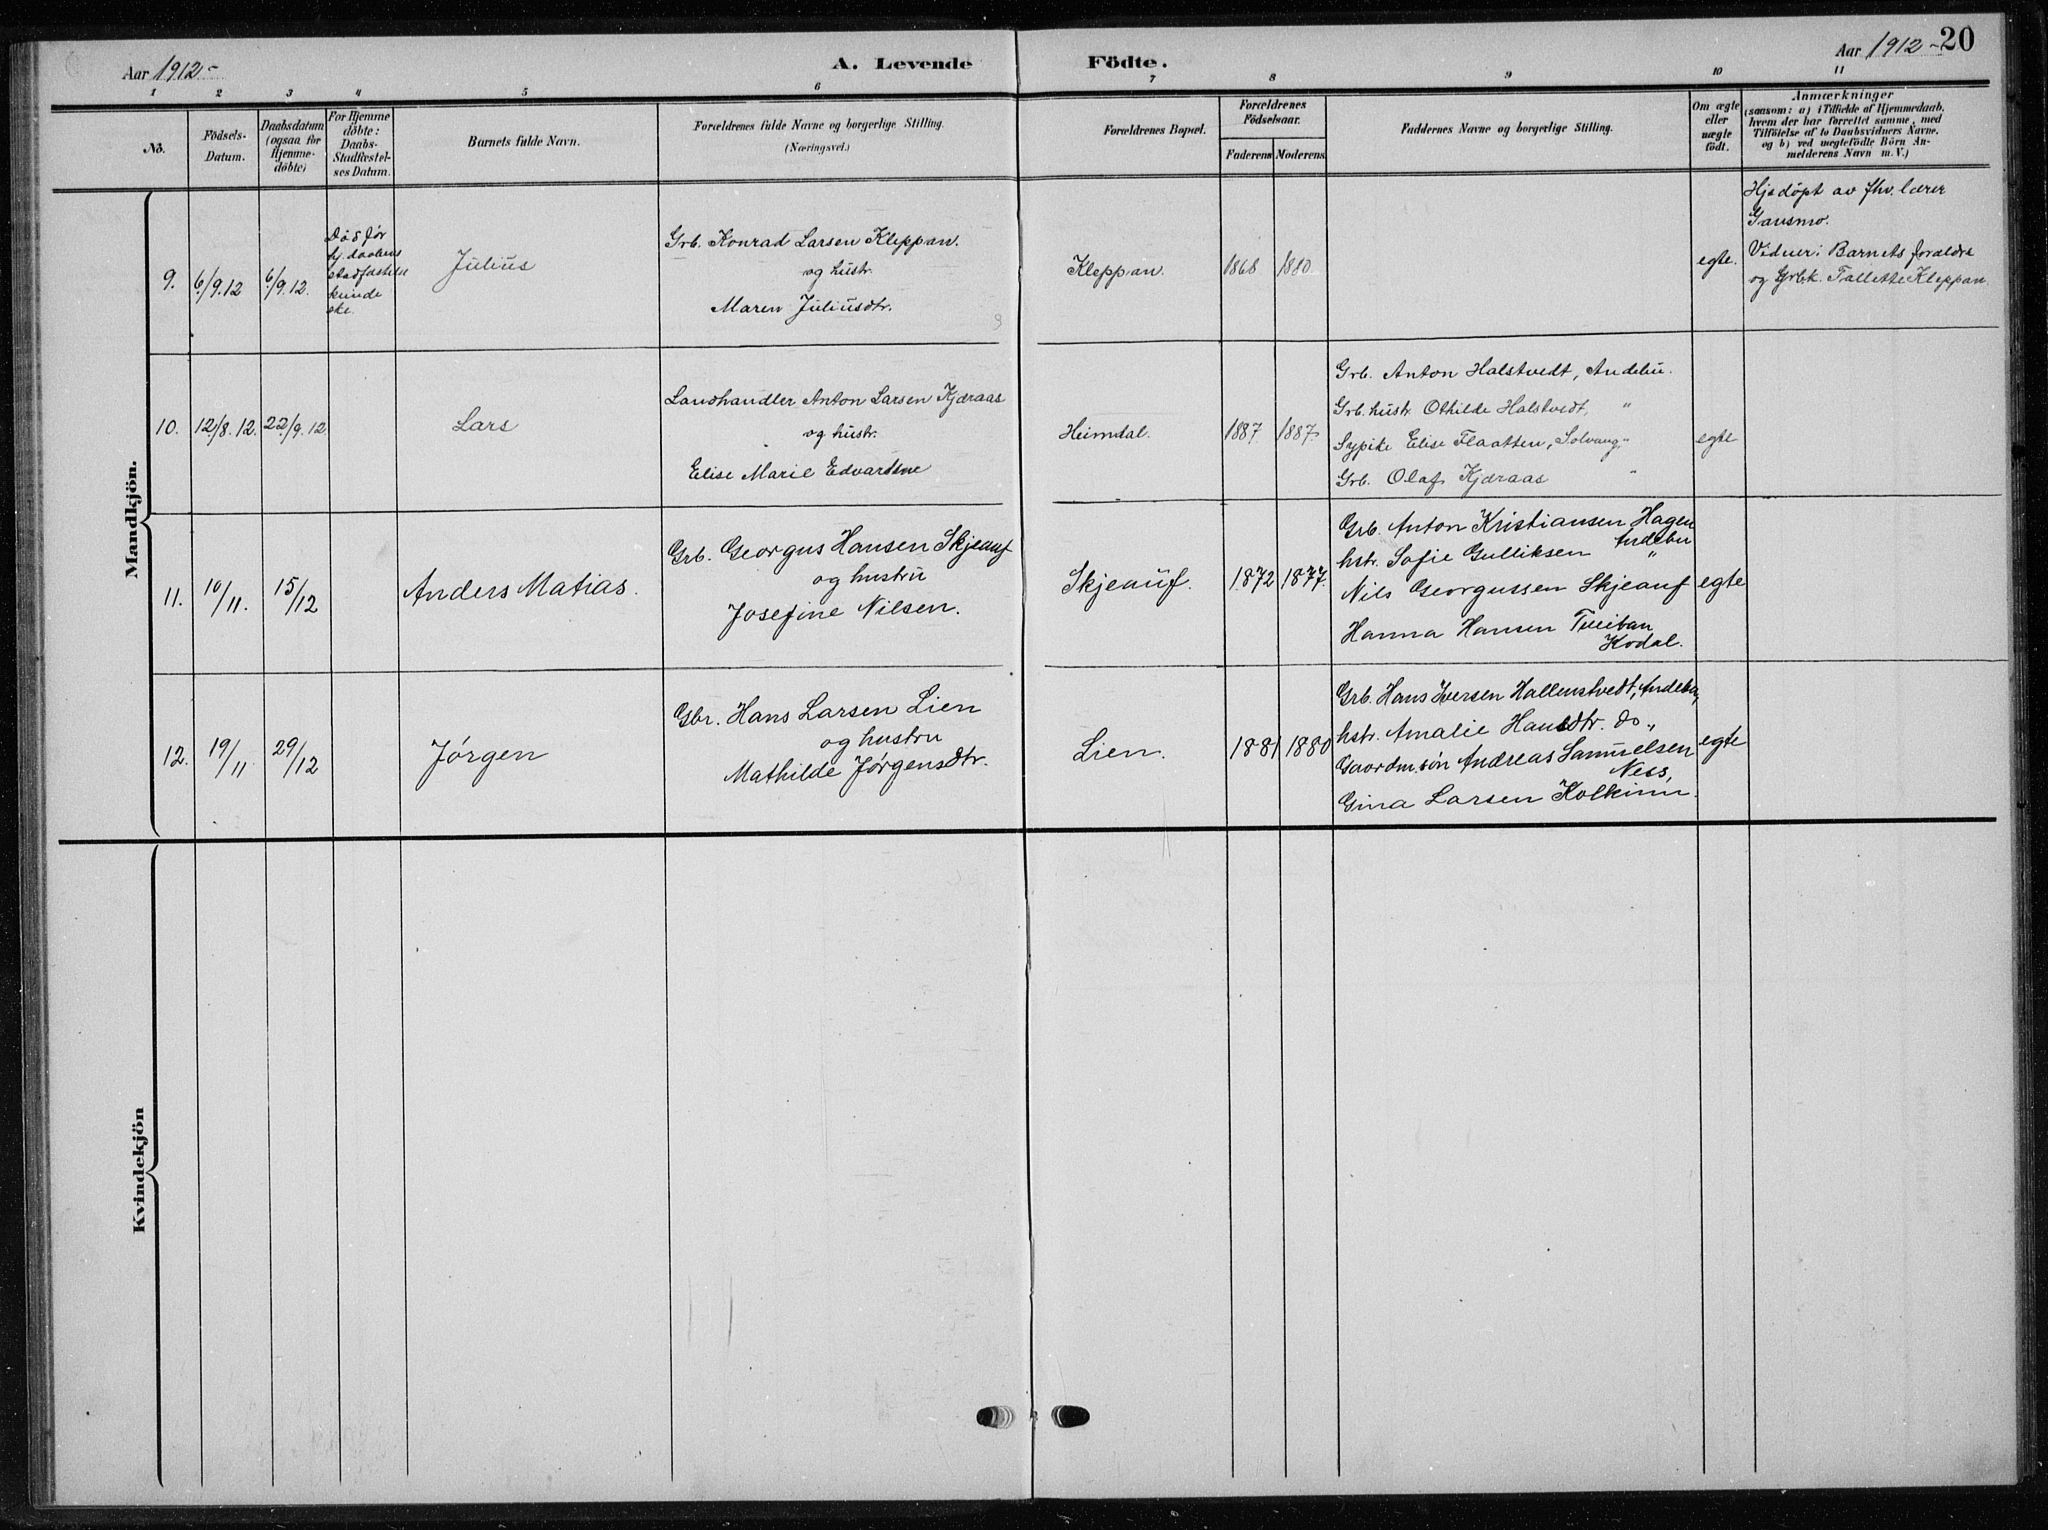 Aar 1912-
A. Levende Födte.
Aar 1912- 20
1 2 3 4 5 6 7 8 9 10 11
No.
Födsels-
Datum.
Daabsdatum
(ogsaa for
Hjemme-
döbte)
For Hjemme
döbte:
Daabs-
Stadfæstel-
ses Datum.
Barnets fulde Navn.
Forældrenes fulde Navne og borgerlige Stilling.
(Næringsvei.)
Forældrenes Bopæl.
Forældrenes
Födselsaar.
Faderens Moderens
Faddernes Navne og borgerlige Stilling.
Om ægte
eller
uægte
födt.
Anmærkninger
(saasom: a) i Tilfælde af Hjemmedaab,
hvem der har forrettet samme, med
Tilföielse af to Daabsvidners Navne.
og b) ved uægtefödte Börn An-
melderens Navn m. V.)
Mandkjön.
9. 6/9.12 6/9.12.
Död før
hj.daabens
stadfæstelse
kunde
ske.
Julius
Grb. Konrad Larsen Kleppan.
og hustr.
Maren Juliusdtr.
Kleppan. 1868 1880.
egte.
Hjedöpt av fhv. lærer
Gausmo.
Vidner: Barnets forældre
og Grbk. Tallette Kleppan.
10. 12/8.12. 22/9.12.
Lars
Landhandler Anton Larsen Kjæraas
og hustr.
Elise Marie Edvardsne
Heimdal. 1887 1887.
Grb. Anton Halstvedt, Andebu.
Grb. hustr. Othilde Halstvedt, "
Sypike Elise Flaatten, Solvang, "
Grb. Olaf Kjæraas "
egte
11. 10/11. 15/12
Anders Matias.
Grb. Georgus Hansen Skjeauf
og hustru
Josefine Nilsen.
Skjeauf. 1872 1877.
Grb. Anton Kristiansen Hagen
Andebu
hstr. Sofie Gulliksen "
Nils Georgussen Skjeauf
Hanna Hansen Tveitan
Kodal.
egte
12. 19/11. 29/12
Jørgen
Gbr. Hans Larsen Lien
og hustru
Mathilde Jørgensdtr.
Lien. 1881 1880
Grb. Hans Iversen Hallenstvedt, Andebu,
hstr. Amalie Hansdtr. do "
Gaardm.søn Andreas Samuelsen
Ness,
Gina Larsen Kolkinn.
egte
Kvindekjön